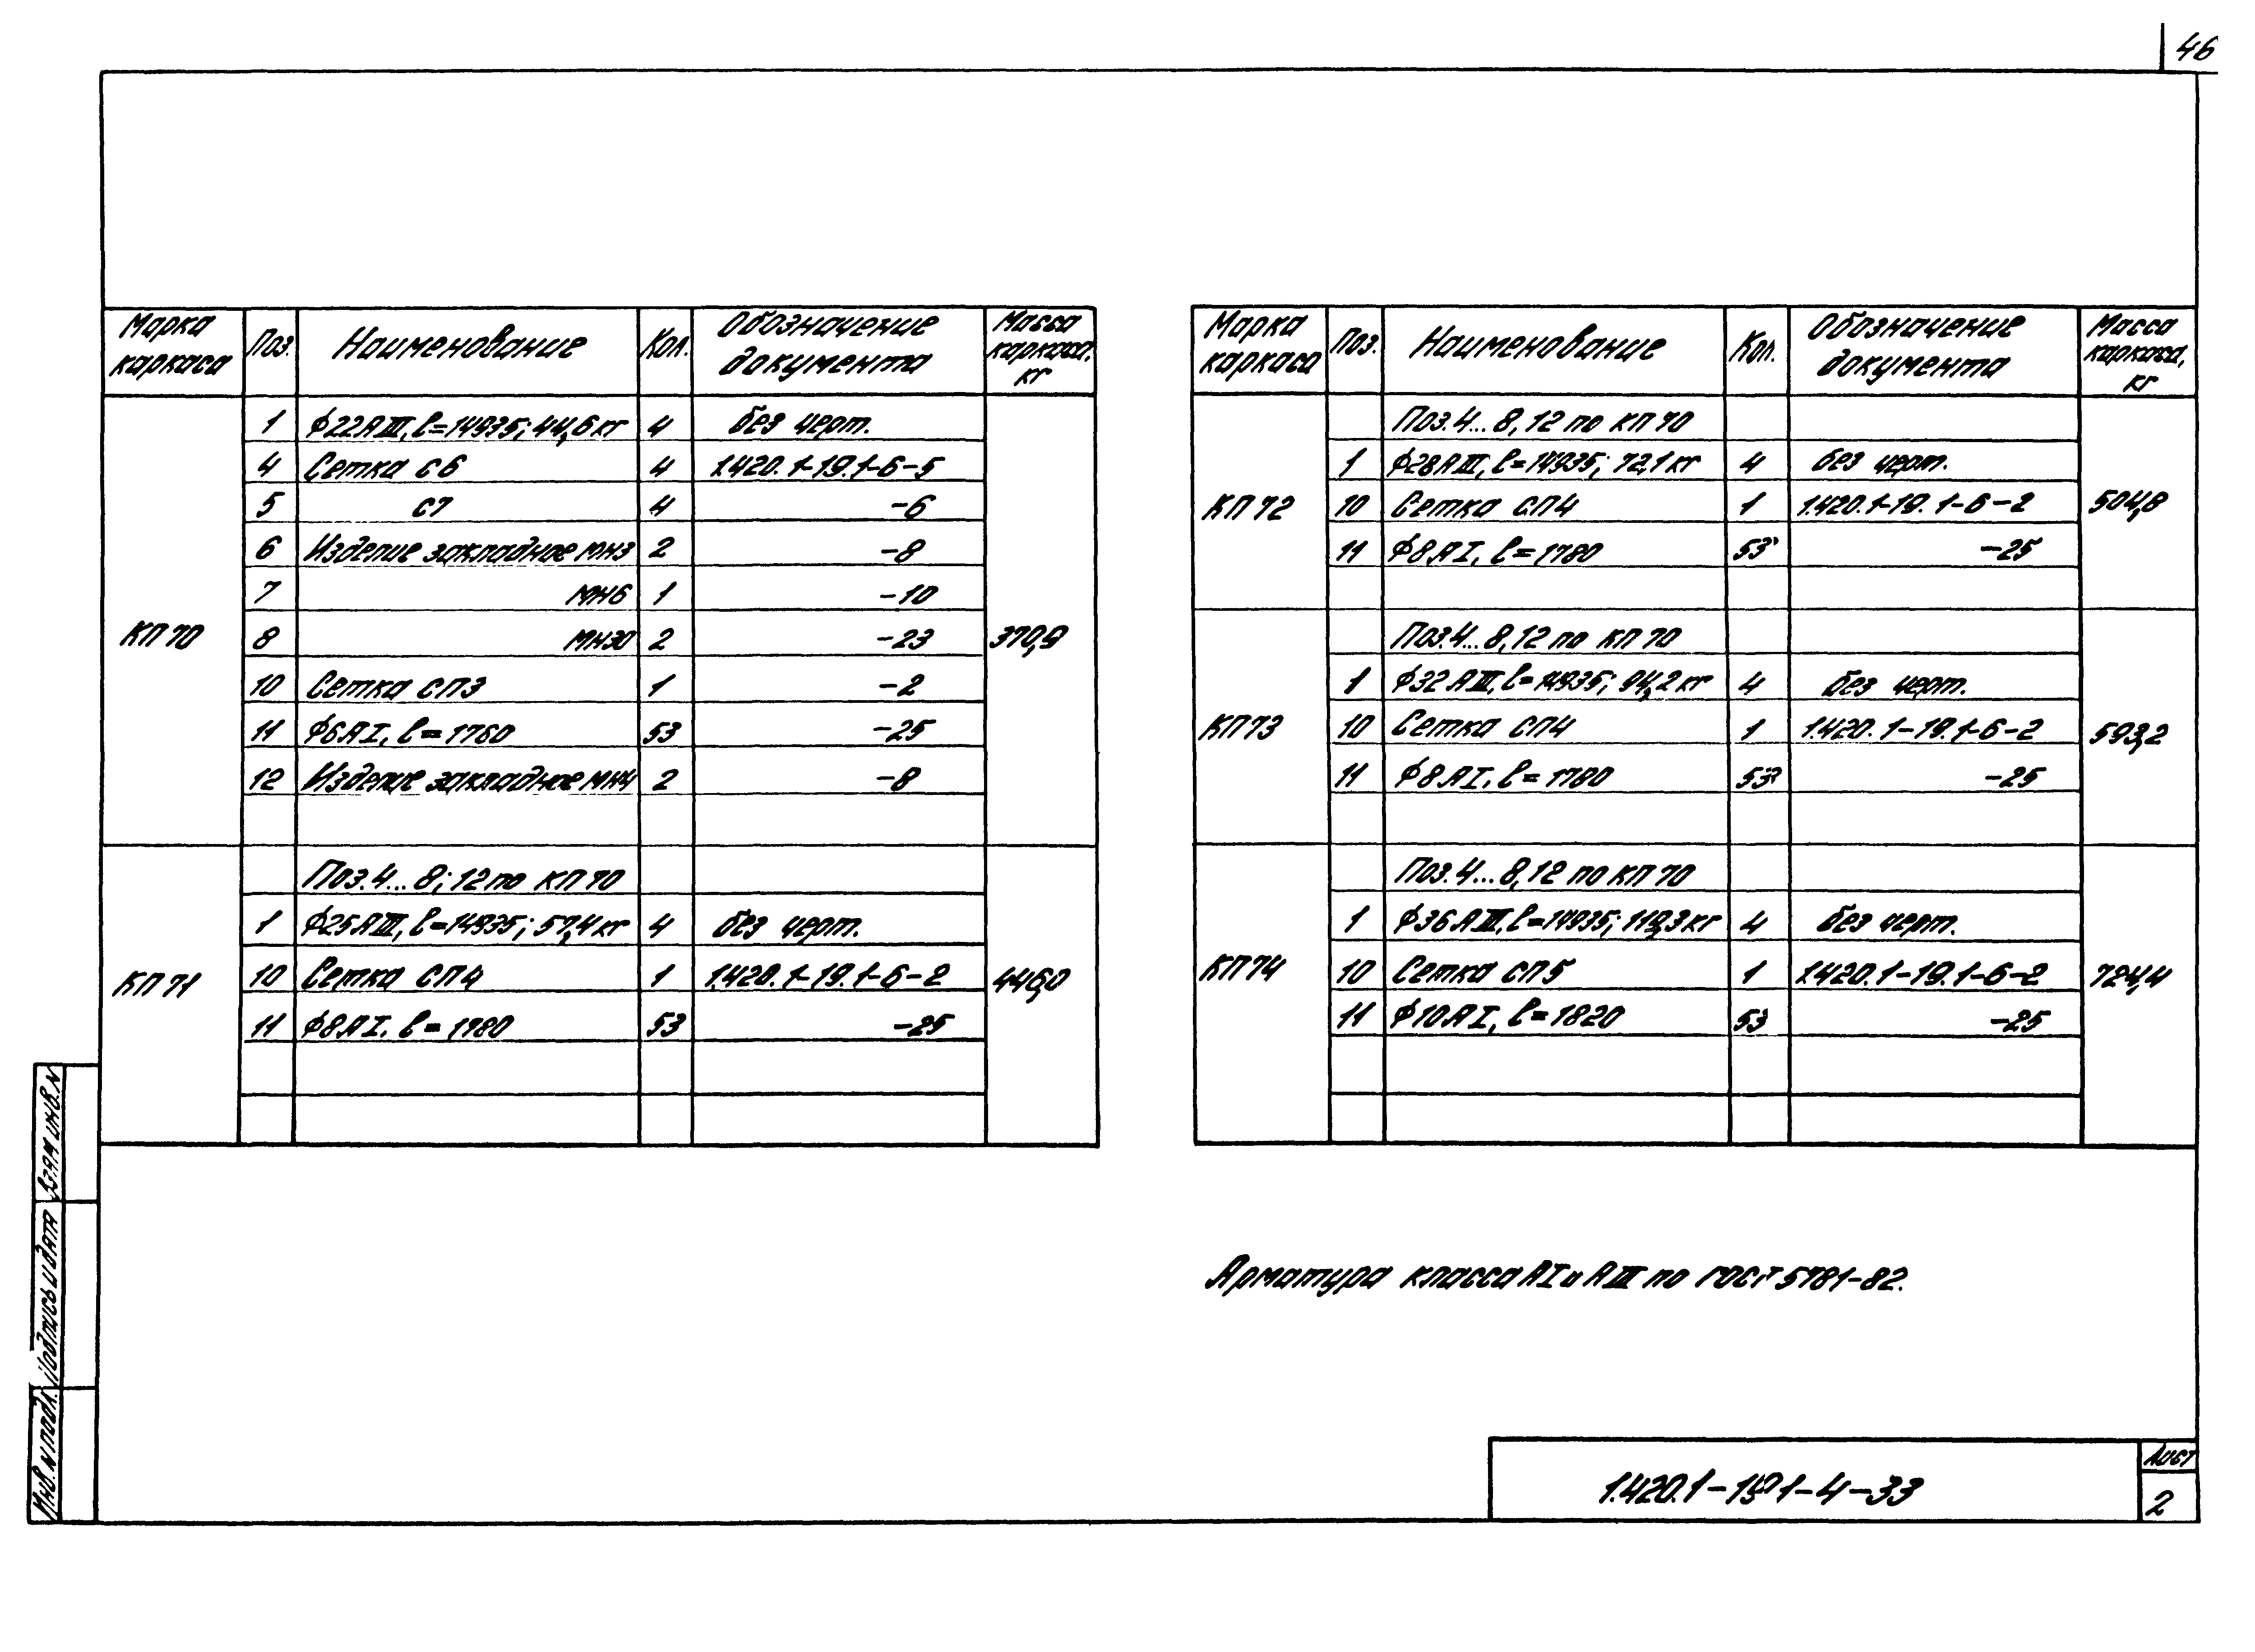 46
Марка каркаса Поз. Наименование Кол. Обозначение документа Масса каркаса, кг
1 Ф22АIII, ℓ=14935; 44,6 кг 4 без черт.
4 Сетка С6 4 1.420.1-19.1-6-5
5 С7 4 -6
6 Изделие закладное МН3 2 -8
7 МН6 1 -10
КП 70 8 МН30 2 -23 370,9
10 Сетка СП3 1 -2
11 Ф6АI, ℓ=1760 53 -25
12 Изделие закладное МН4 2 -8
Поз. 4...8; 12 по КП 70
1 Ф25АIII, ℓ=14935; 57,4 кг 4 без черт.
КП 71 10 Сетка СП4 1 1.420.1-19.1-6-2 446,0
11 Ф8АI, ℓ=1780 53 -25
Марка каркаса Поз. Наименование Кол. Обозначение документа Масса каркаса, кг
Поз. 4...8, 12 по КП 70
1 Ф28АIII, ℓ=14935; 72,1 кг 4 без черт.
КП 72 10 Сетка СП4 1 1.420.1-19.1-6-2 504,8
11 Ф8АI, ℓ=1780 53 -25
Поз. 4...8, 12 по КП 70
1 Ф32АIII, ℓ=14935; 94,2 кг 4 без черт.
КП 73 10 Сетка СП4 1 1.420.1-19.1-6-2 593,2
11 Ф8АI, ℓ=1780 53 -25
Поз. 4...8, 12 по КП 70
1 Ф36АIII, ℓ=14935; 119,3 кг 4 без черт.
КП 74 10 Сетка СП5 1 1.420.1-19.1-6-2 724,4
11 Ф10АI, ℓ=1820 53 -25
Арматура класса АI и АIII по ГОСТ 5781-82.
Взам инв. N
Подпись и дата
Инв. N подл.
1.420.1-19.1-4-33
Лист
2